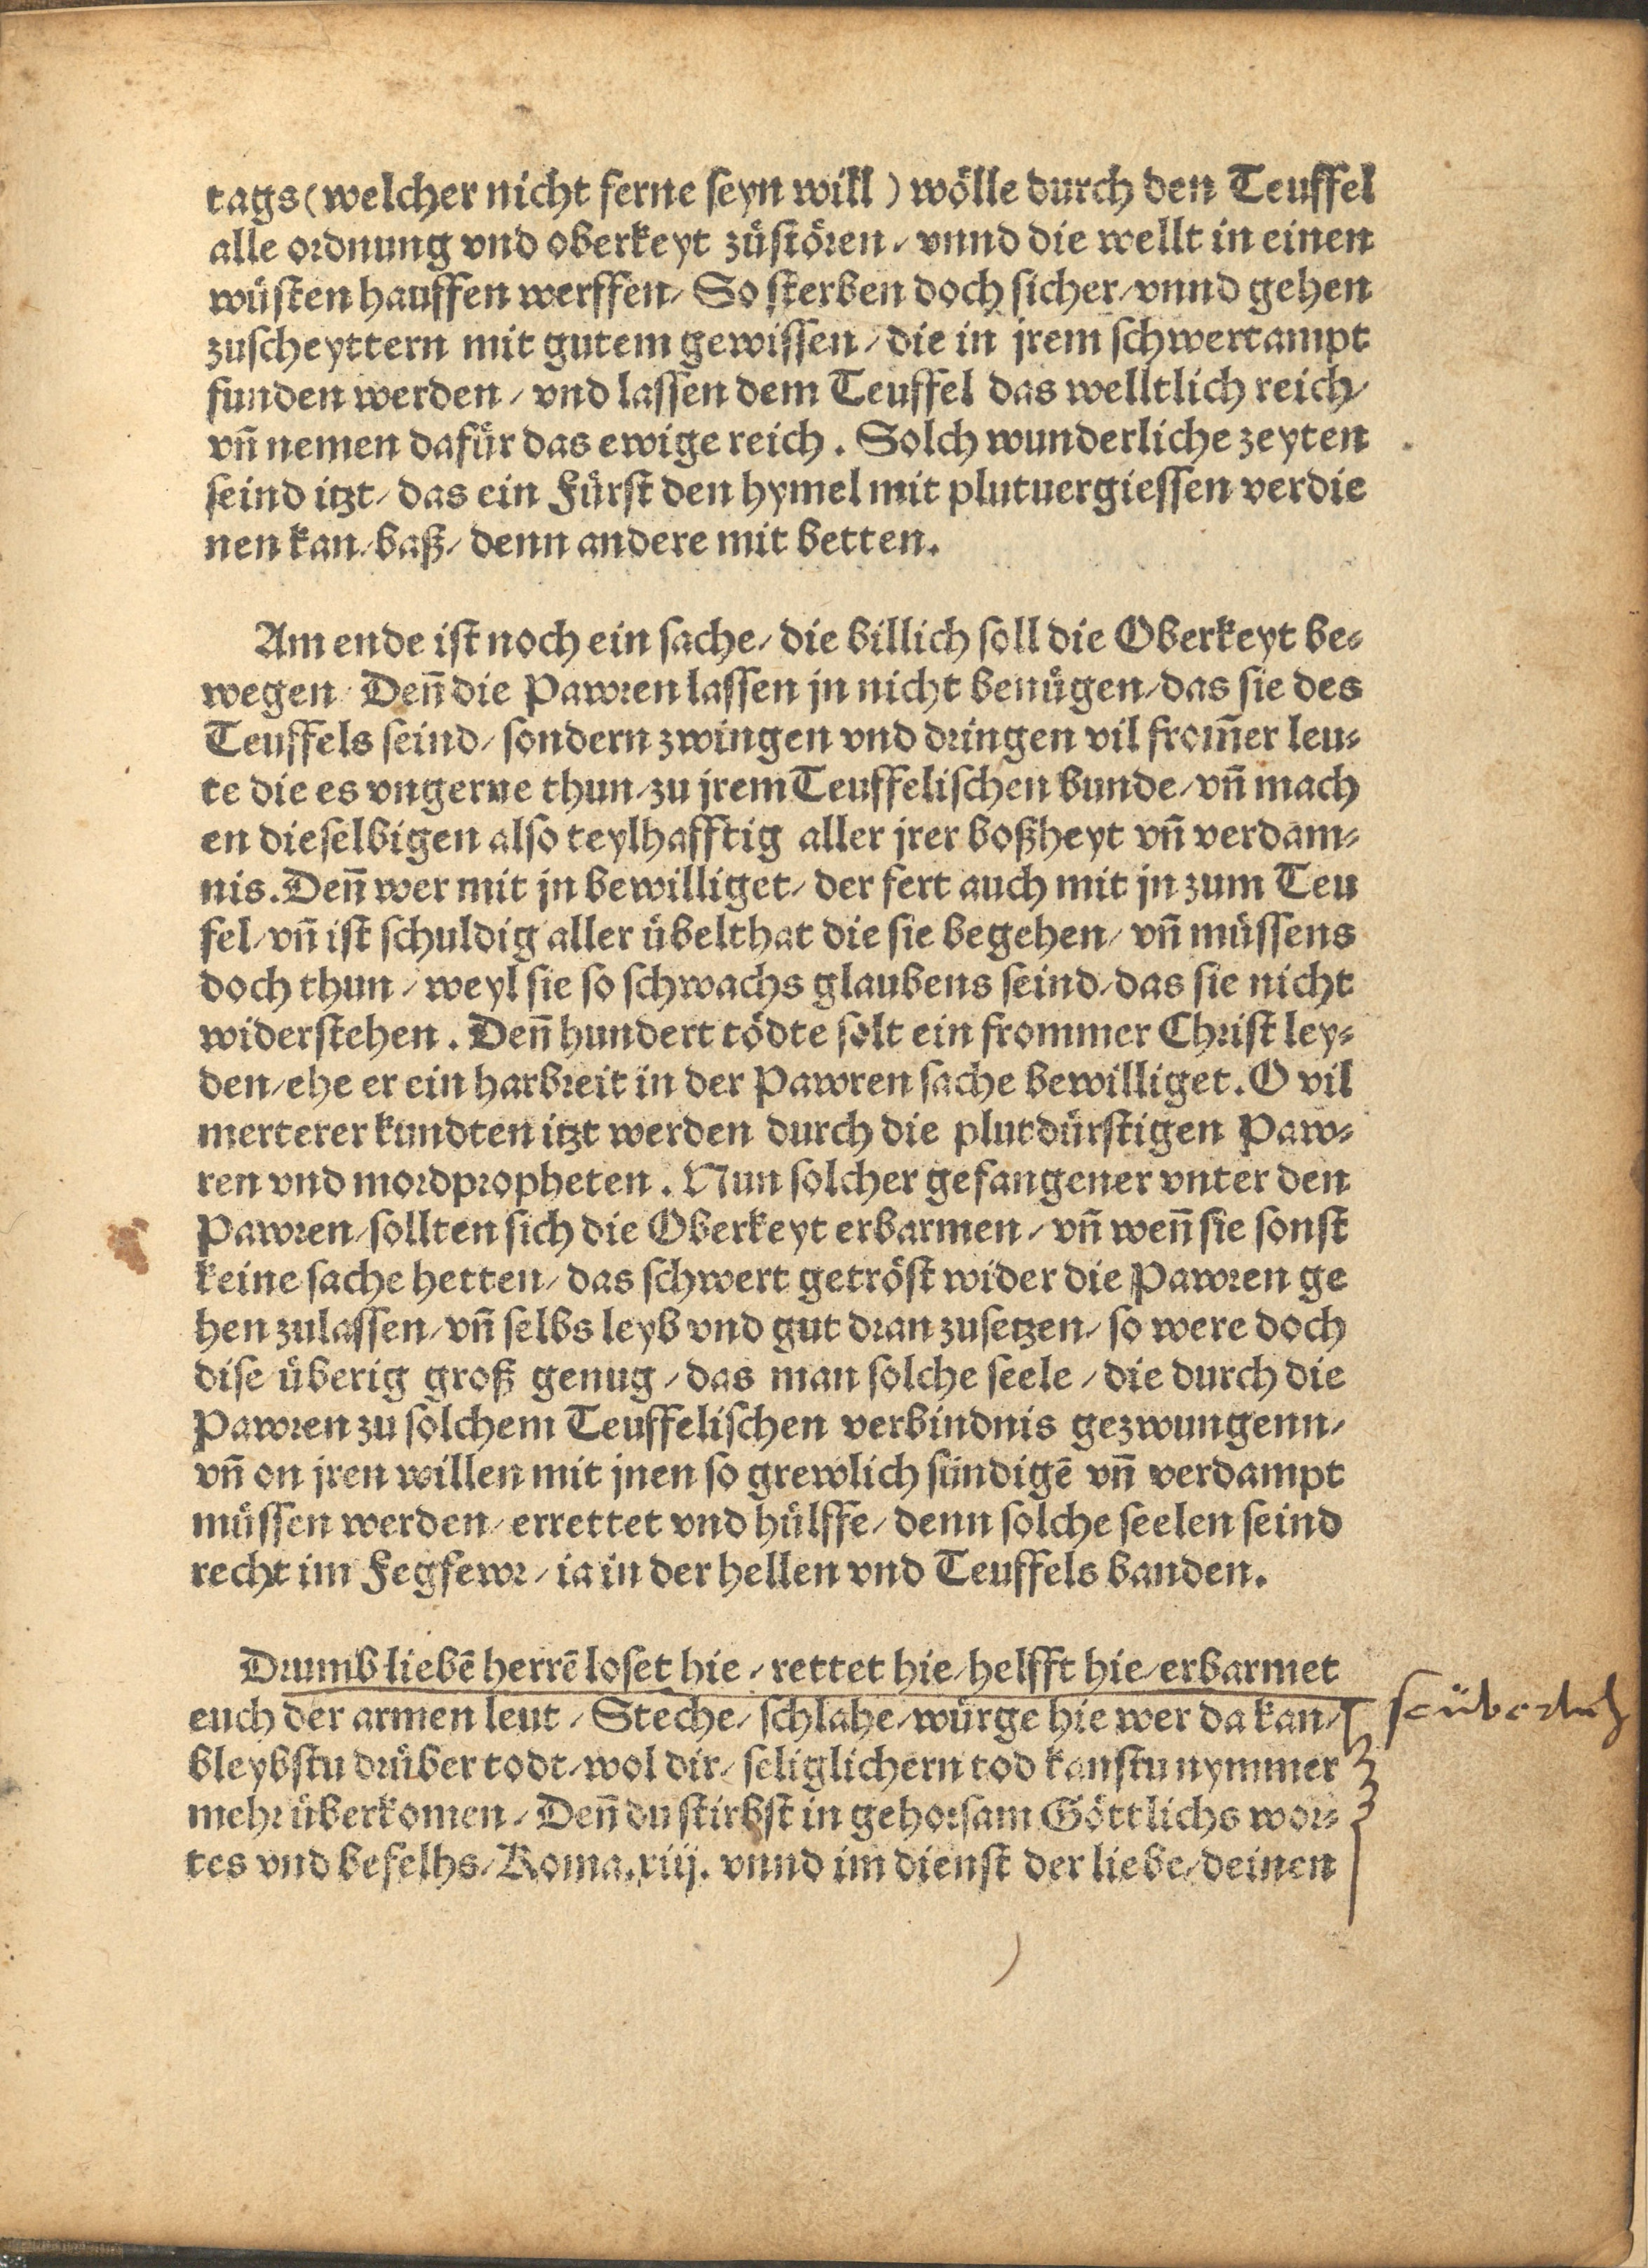 tags (welcher nicht ferne seyn will) wölle durch den Teuffel
alle ordnung vnd oberkeyt zůstören / vnnd die wellt in einen
wůsten hauffen werffen / So sterben doch sicher / vnnd gehen
zuscheyttern mit gutem gewissen / die in jrem schwertampt
funden werden / vnd lassen dem Teuffel das welltlich reich /
vñ nemen dafür das ewige reich . Solch wunderliche zeyten
seind itzt / das ein Fürst den hymel mit plutuergiessen verdie
nen kan / baß / denn andere mit betten.
Am ende ist noch ein sache / die billich soll die Oberkeyt be⸗
wegen Deñ die Pawren lassen jn nicht benügen / das sie des
Teuffels seind / sondern zwingen vnd dringen vil from̃er leu⸗
te die es vngerne thun / zu jrem Teuffelischen bunde / vñ mach
en dieselbigen also teylhafftig aller jrer boßheyt vñ verdam⸗
nis. Deñ wer mit jn bewilliget / der fert auch mit jn zum Teu
fel / vñ ist schuldig aller übelthat die sie begehen / vñ müssens
doch thun / weyl sie so schwachs glaubens seind / das sie nicht
widerstehen . Deñ hundert tödte solt ein frommer Christ ley⸗
den / ehe er ein harbreit in der Pawren sache bewilliget. O vil
merterer kundten itzt werden durch die plutdürstigen Paw⸗
ren vnd mordpropheten . Nun solcher gefangener vnter den
Pawren / sollten sich die Oberkeyt erbarmen / vñ weñ sie sonst
keine sache hetten / das schwert getröst wider die Pawren ge
hen zulassen / vñ selbs leyb vnd gut dran zusetzen / so were doch
dise überig groß genug / das man solche seele / die durch die
Pawren zu solchem Teuffelischen verbindnis gezwungenn /
vñ on jren willen mit jnen so grewlich sündigẽ vñ verdampt
müssen werden / errettet vnd hülffe / denn solche seelen seind
recht im Fegfewr / ia in der hellen vnd Teuffels banden.
Drumb liebẽ herrẽ loset hie / rettet hie / helfft hie / erbarmet
euch der armen leut / Steche / schlahe / würge hie wer da kan /
seüberlich
bleybstu drüber todt / wol dir / seliglichern tod kanstu nymmer
mehr überkomen / Deñ du stirbst in gehorsam Göttlichs wor⸗
tes vnd befelhs / Roma. xiij. vnnd im dienst der liebe / deinen